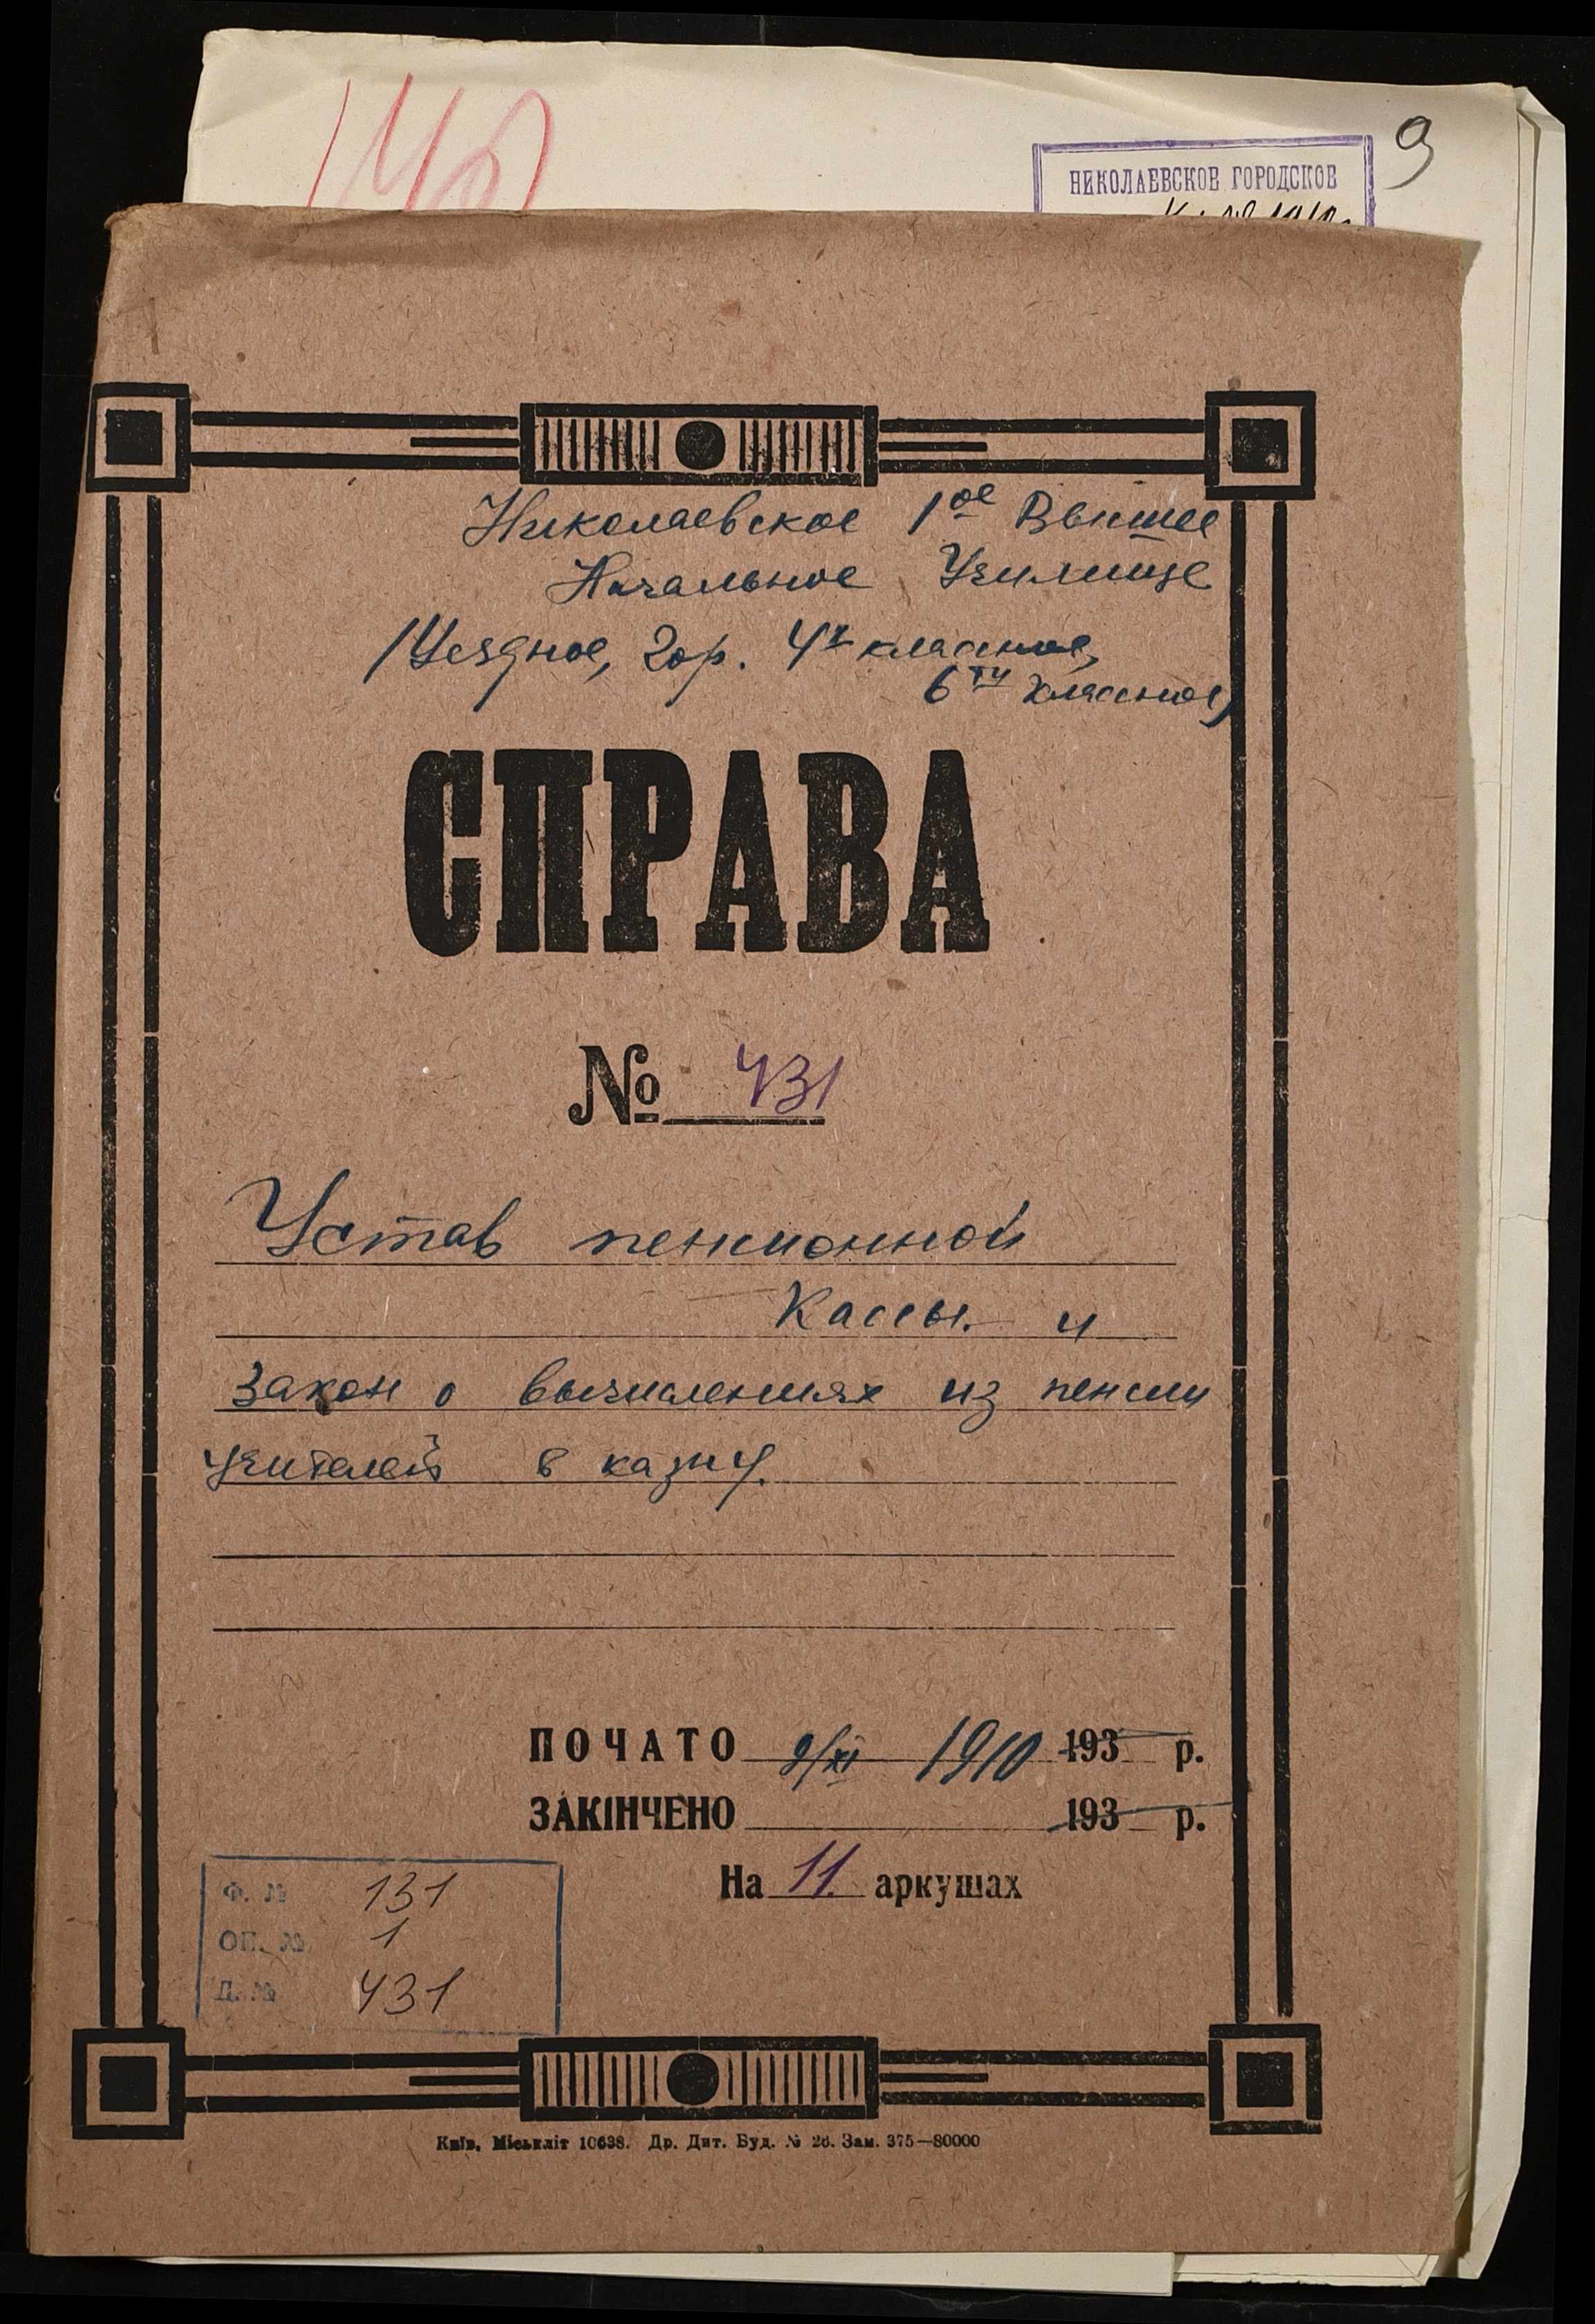 9
НИКОЛАЕВСКОЕ ГОРОДСКОЕ
Николаевское 1ое Высшее
Начальное Училище
/Уездное, Гор. 4х классное,
6ти классное/
СПРАВА
№ 431
Устав пенсионной
Кассы. и
закон о вычислениях из пенсии
учителей в казну.
ПОЧАТО 9/XI 1910 193 р.
ЗАКІНЧЕНО 193 р.
На 11. аркушах
Ф. № 131
ОП. № 1
Д. № 431
Київ, Міськліт 10638. Др. Дит. Буд. № 26. Зам. 375—80000